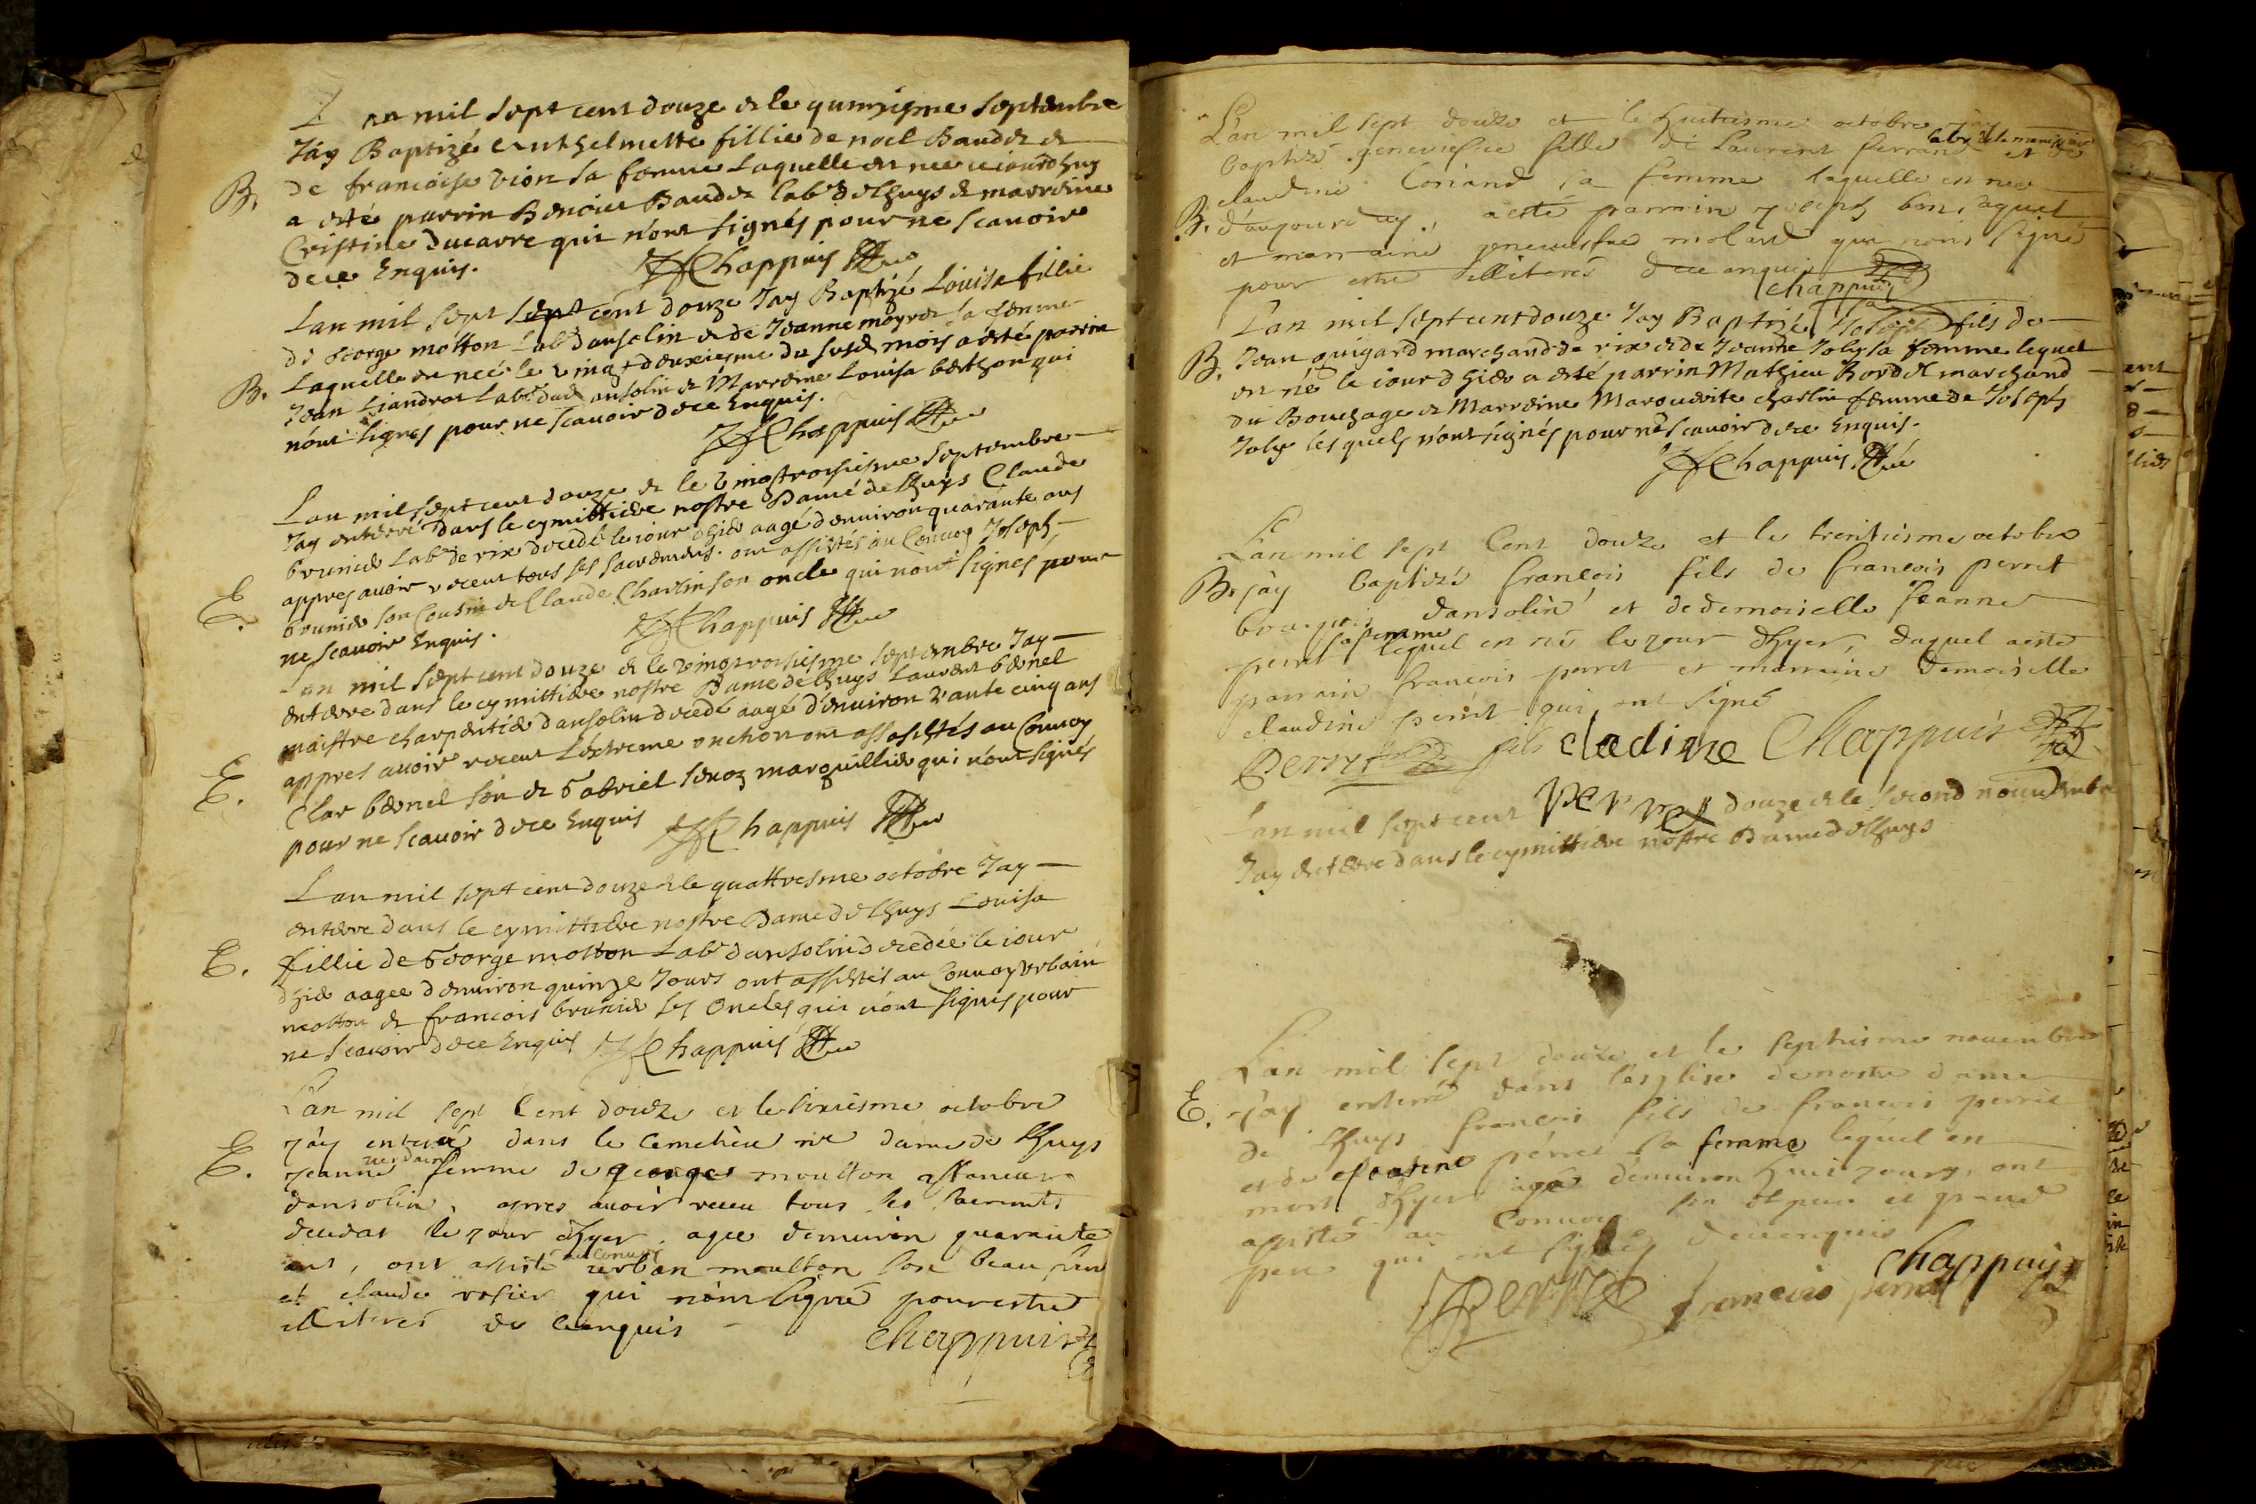 Lan mil sept cent douze & le quinzieme septembre
Jay Baptizé Anthelmette fillie de noel Baudet &
de francoise vion sa femme laquelle est née ce iourdhuy
B. a esté parrin Benoit Baudet lab.r de lhuys & marreine
Cristine ducarre qui n'ont signés pour ne scauoir
de ce Enquis. Chappuis
Lan mil sept sept cent douze Jay Baptizé Louisa fillie
de George motton Lab.r dansolin & de Jeanne moyret sa femme
B. Laquelle est neé le vingt deuxiesme du susd. mois a esté parrin
Jean Liandrat Lab.r dud. ansolin & Marreine Louisa berthon qui
n'ont signes pour ne scauoir de ce Enquis.
Chappuis
Lan mil sept cent douze & le vingtroisiesme septembre
Jay enterré dans le cymittiere nostre Dame de lhuys Claude
brunier Lab.r de rix decedé le iour d'hier aagé d'enuiron quarante ans
E. appres auoir receut tous ses sacremens. ont assistés au Conuoy Joseph
brunier son Cousin & Claude Charlin son oncle qui n'ont signes pour
ne scauoir Enquis. Chappuis
Lan mil sept cent douze & le vingtroisiesme septembre Jay
enterre dans le cymittiere nostre Dame de lhuys Laurent bernel
maistre charpentier dansolin decedé aagé d'enuiron cinq ans
E. appres auoir receut L'extreme onction ont assistés au Conuoy
Clar bernel son & Gabriel seuoz marguillier qui n'ont signés
pour ne scauoir de ce Enquis Chappuis
Lan mil sept cent douze & le quattresme octobre Jay
enterre dans le cymittiere nostre Dame de lhuys Louisa
E. fillie de George motton Lab.r dansolin decedée le iour
d'hier aagee d'enuiron quinze Jours ont assistés au Conuoy Urbain
motton & francois brunier ses Oncles qui n'ont signés pour
ne scauoir de ce Enquis Chappuis
Lan mil sept Cent douze et le sixiesme octobre
jay enterré dans le Cemetiere n.re dame de lhuys
E. Jeanne femme de georges moulton
dansolin, apres auoir receu tous les sacrements
decedas le jour d'hyer, agee denuiron quarante
ans, ont assisté au Conuoy urban moulton son beau frere
et claude rosier qui n'ont signé pour estre
illiterés de ce enquis
Chappuis
Lan mil sept douze et le huitiesme octobre jay
baptisé geneuiefue fille de Laurent ferrand et de
claudine Coriand sa femme laquelle est née
B. d'aujourduy, a esté parrain joseph bon
et marraine geneuiefue molard qui n'ont signé
pour estre illiterés de ce enquis
Chappuis
Lan mil sept cent douze Jay Baptizé Joseph fils de
B. Jean guigard marchand de rix & de Jeanne Joly sa femme lequel
est né le iour d'hier a esté parrin Mathieu Bordet marchand
du Bouchage & Marreine Marguerite charlin femme de Joseph
Joly lesquels n'ont signés pour ne scauoir de ce Enquis.
Chappuis
Lan mil sept Cent douze et le trentiesme octobre
B. jay baptizé francois fils de francois perret
bourgois dansolin et de demoiselle Jeanne
perret sa femme lequel est né le jour dhyer, duquel a esté
parrain francois perret et marraine demoiselle
claudine perret qui ont signé
Perret fils cladine Chappuis
perret
Lan mil sept cent douze & le second nouembre
Jay enterre dans le cymittiere nostre Dame de lhuys
Lan mil sept douze et le septiesme nouembre
E. jay enterré dans l'esglise de nostre dame
de lhuys francois fils de francois perret
et de perret sa femme lequel est
mort dhyer agé denuiron huit jours, ont
assisté au Conuoy son pere et grand
pere qui ont signé de ce enquis
Chappuis
Perret francois perret